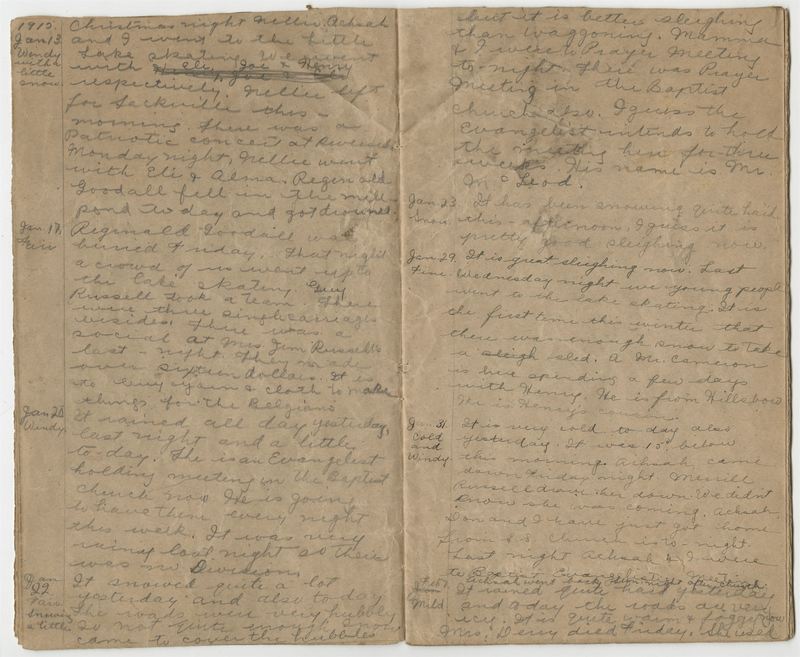 1915
Jan. 13.
Windy
with a
little
snow.
Christmas night Nellie, Achsah
and I went to the little
Lake skating. We went
with Eli, Joe & Henry
respectively, Nellie left
for Sackville this
morning. There was a
Patriotic concert at
Monday night, Nellie went
with Eli & Alma. Reginald
Goodall fell in the mill-
pond to day and got drowned.
Jan. 17,
Fair
Reginald Goodall was
buried Friday. That night
a crowd of us went up to
the lake skating. Guy
Russell took a team. There
were three single carriages
besides. There was a
social at Mrs. Jim Russell's
last night. They made
over sixteen dollars. It is
to buy yarn & cloth to make
things for the Belgians
Jan 20
Windy.
It rained all day yesterday,
last night and a little
to-day. The is an Evangelist
holding meeting in the Baptist
church now. He is going
to have them every night
this week. It was very
rainy last night so there
was no Division.
Jan
22
Fair
a little
It snowed quite a lot
yesterday and also to day
The roads were very hubbly
so not quite enough snow
came to cover the hubbles
but it is better sleighing
than waggoning. Mamma
& I were to Prayer Meeting
to-night. There was Prayer
Meeting in the Baptist
church also. I guess the
Evangelist intends to hold
the meeting here for three
weeks. His name is Mr.
McLeod.
Jan 23.
Snow
It has been snowing quite hard
this afternoon. I guess it is
pretty good sleighing now.
Jan. 29.
Fine.
It is great sleighing now. Last
Wednesday night we young people
went to the lake skating. It is
the first time this winter that
there was enough snow to take
a sleigh sled. A Mr. Cameron
is here spending a few days
with Henry. He is from Hillsboro
He is Henry's cousin.
Jan. 31.
Cold
and
Windy
It is very cold to day also
yesterday. It was 15° below
this morning. Achsah came
down Friday night. Merrill
Russell drove her down. We didn't
know she was coming. Achsah
Don and I have just got home
from S.S. Church is to night.
Last night Achsah & I were
to
Achsah went after church.
Feb 7
Mild
It rained quite hard yesterday
and to day the roads are very
icy. It is quite warm & foggy now
Mrs. Derry died Friday. She used